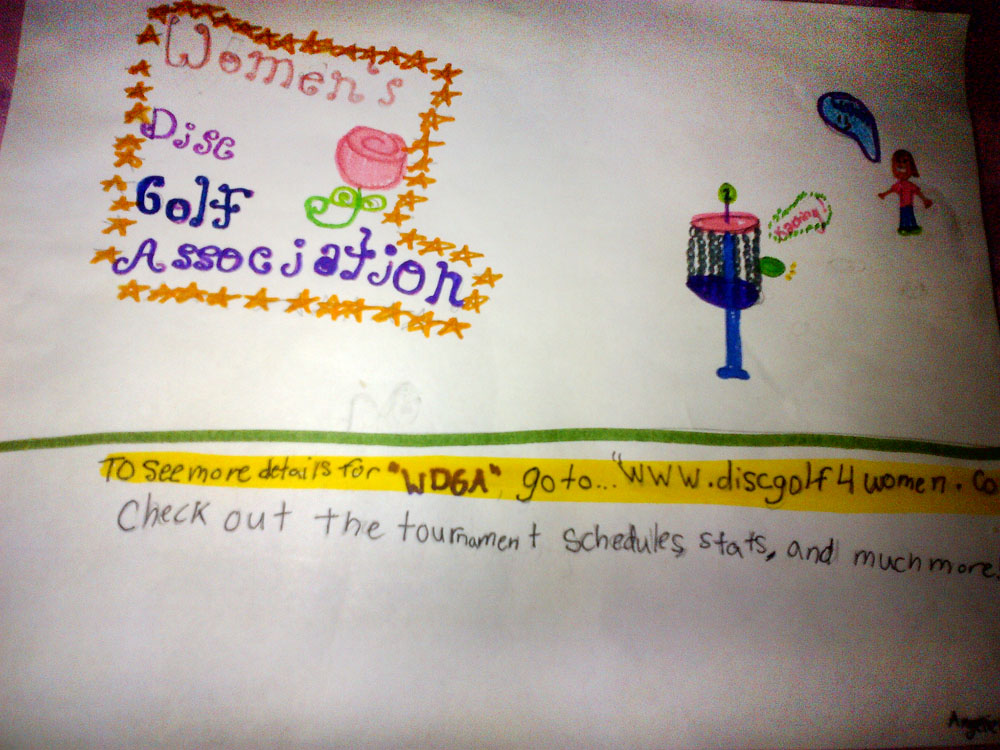 Women's
Disc
Golf
Association
1
To see more details for "WDGA", go to... "www.discgolf4women.co
Check out the tournament schedules, stats, and much more!